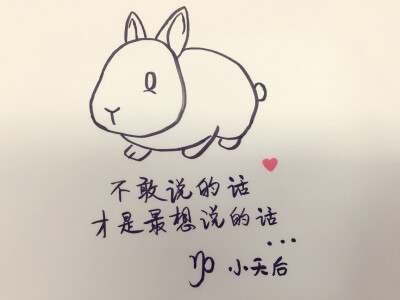 不敢说的话
才是最想说的话
...
♑ 小天后